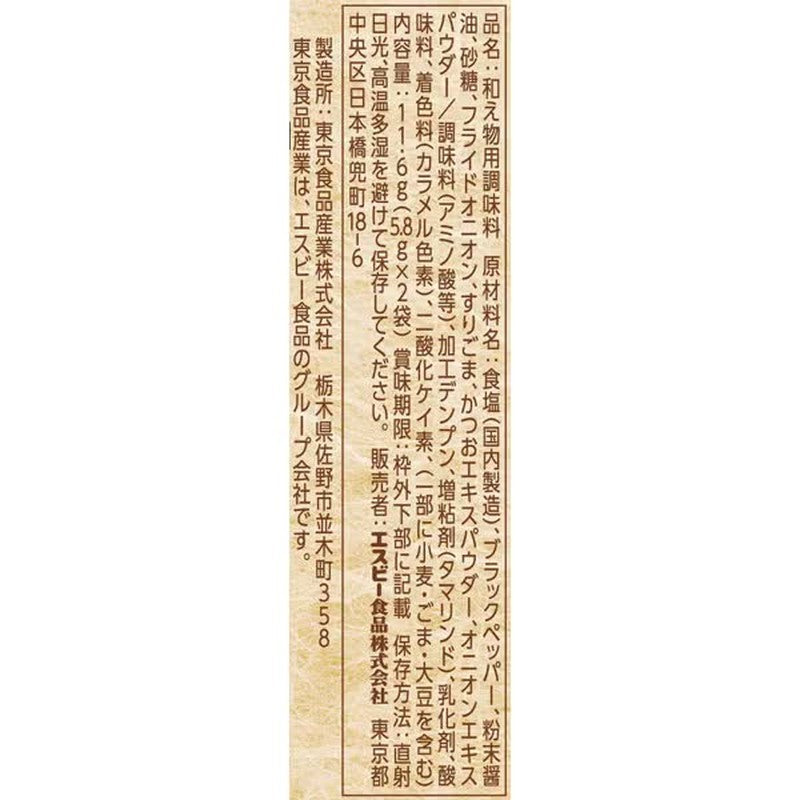 品名：和え物用調味料　原材料名：食塩（国内製造）、ブラックペッパー、粉末醤
油、砂糖、フライドオニオン、すりごま、かつおエキスパウダー、オニオンエキス
パウダー／調味料（アミノ酸等）、加工デンプン、増粘剤（タマリンド）、乳化剤、酸
味料、着色料（カラメル色素）、二酸化ケイ素、（一部に小麦・ごま・大豆を含む）
内容量：11.6g（5.8g×2袋）　賞味期限：枠外下部に記載　保存方法：直射
日光、高温多湿を避けて保存してください。　販売者：エスビー食品株式会社　東京都
中央区日本橋兜町18-6
製造所：東京食品産業株式会社　栃木県佐野市並木町358
東京食品産業は、エスビー食品のグループ会社です。